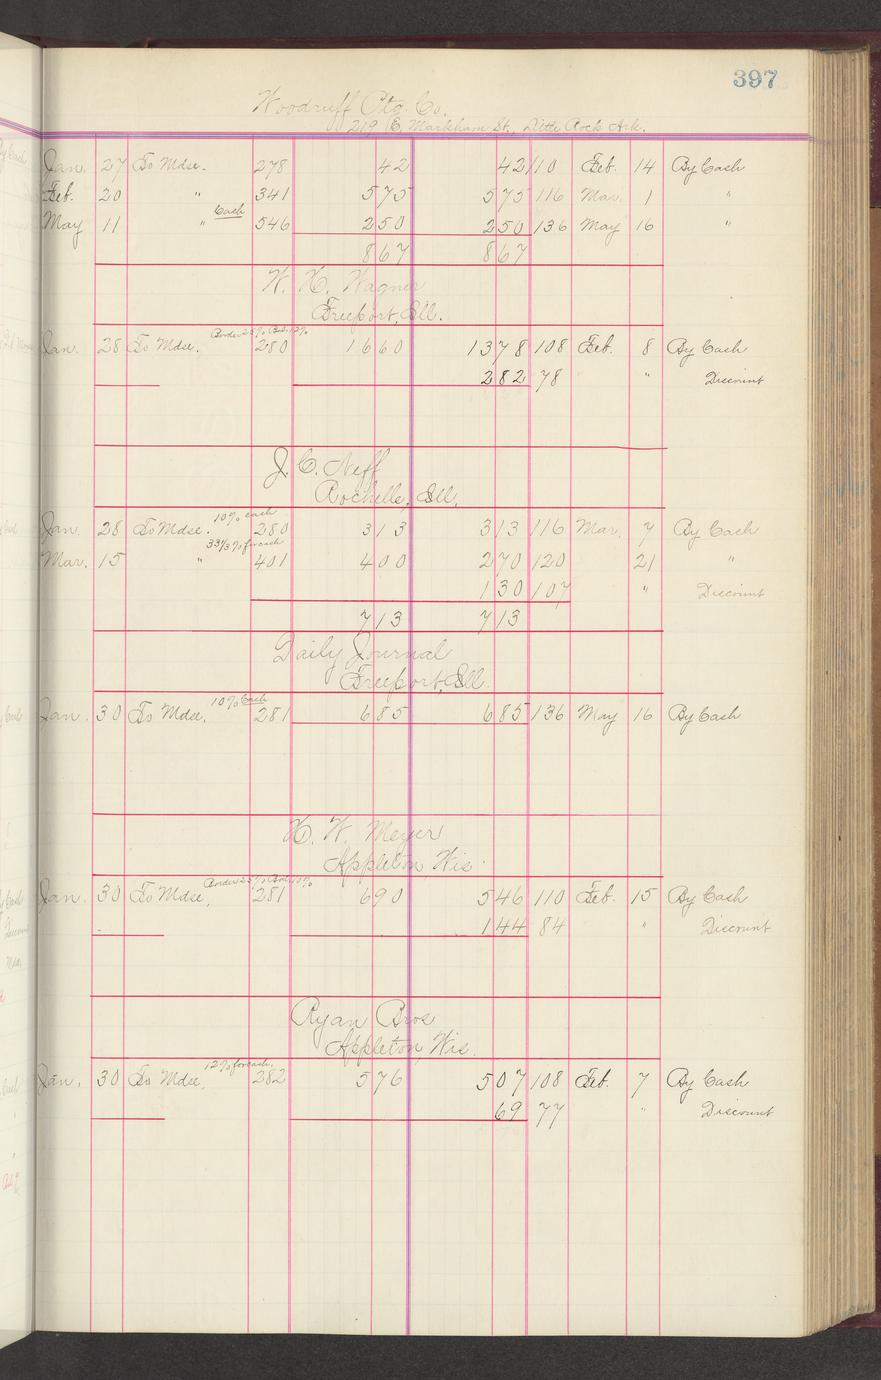 397
Woodruff Ptg. Co.
219 E. Markham St., Little Rock Ark.
Jan. 27 To Mdse. 278 42 42 110 Feb. 14 By Cash
Feb. 20 " 341 575 575 116 Mar. 1 "
Cash
May 11 " 546 250 250 136 May 16 "
867 867
W. H. Wagner
Freeport, Ill.
Border 25% Bal. 12%
Jan. 28 To Mdse. 280 1660 1378 108 Feb. 8 By Cash
282 78 " Discount
J. C. Neff
Rochelle, Ill.
10% cash
Jan. 28 To Mdse. 280 313 313 116 Mar. 7 By Cash
33 1/3% for cash
Mar. 15 " 401 400 270 120 21 "
130 107 " Discount
713 713
Daily Journal
Freeport, Ill.
10% Cash
Jan. 30 To Mdse. 281 685 685 136 May 16 By Cash
H. W. Meyer
Appleton Wis.
Border 25% Bal. 10%
Jan. 30 To Mdse. 281 690 546 110 Feb. 15 By Cash
144 84 " Discount
Ryan Bros
Appleton, Wis.
12% for cash.
Jan. 30 To Mdse. 282 576 507 108 Feb. 7 By Cash
69 77 " Discount